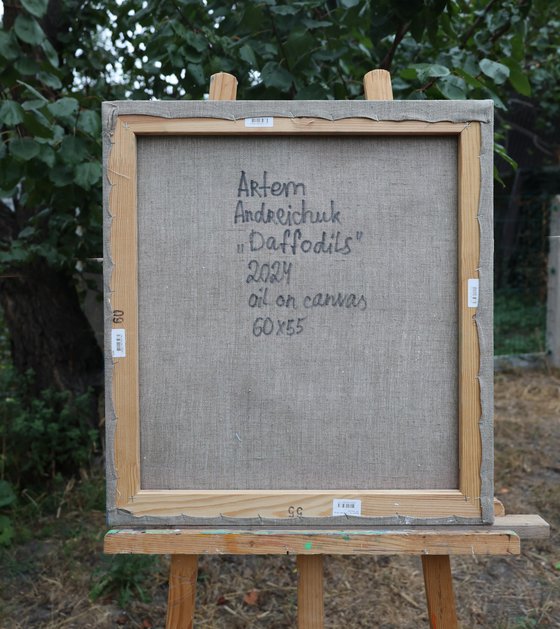 Artem
Andreichuk
„Daffodils"
2024
oil on canvas
60x55
60
55